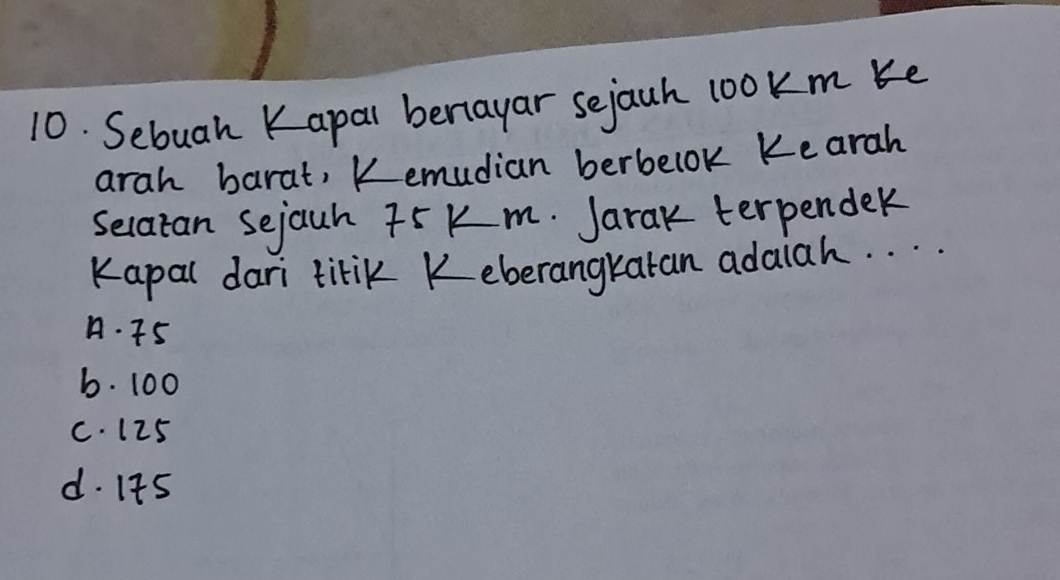 10. Sebuah Kapal berlayar sejauh 100 Km Ke
arah barat, Kemudian berbelok Ke arah
Selatan sejauh 75 Km. Jarak terpendek
Kapal dari titik Keberangkatan adalah ....
A. 75
b. 100
c. 125
d. 175